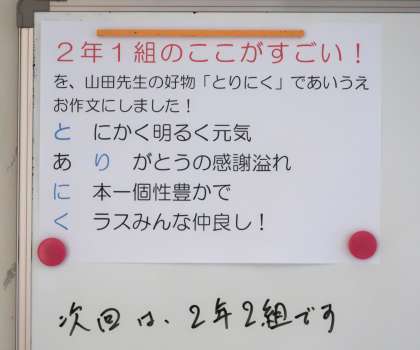 ２年１組のここがすごい！
を、山田先生の好物「とりにく」であいうえ
お作文にしました！
と　にかく明るく元気
あ　り　がとうの感謝溢れ
に　本一個性豊かで
く　ラスみんな仲良し！
次回は、2年2組です